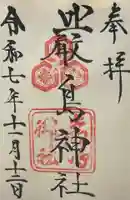 奉拝
厳島神社
令和七年十一月十二日